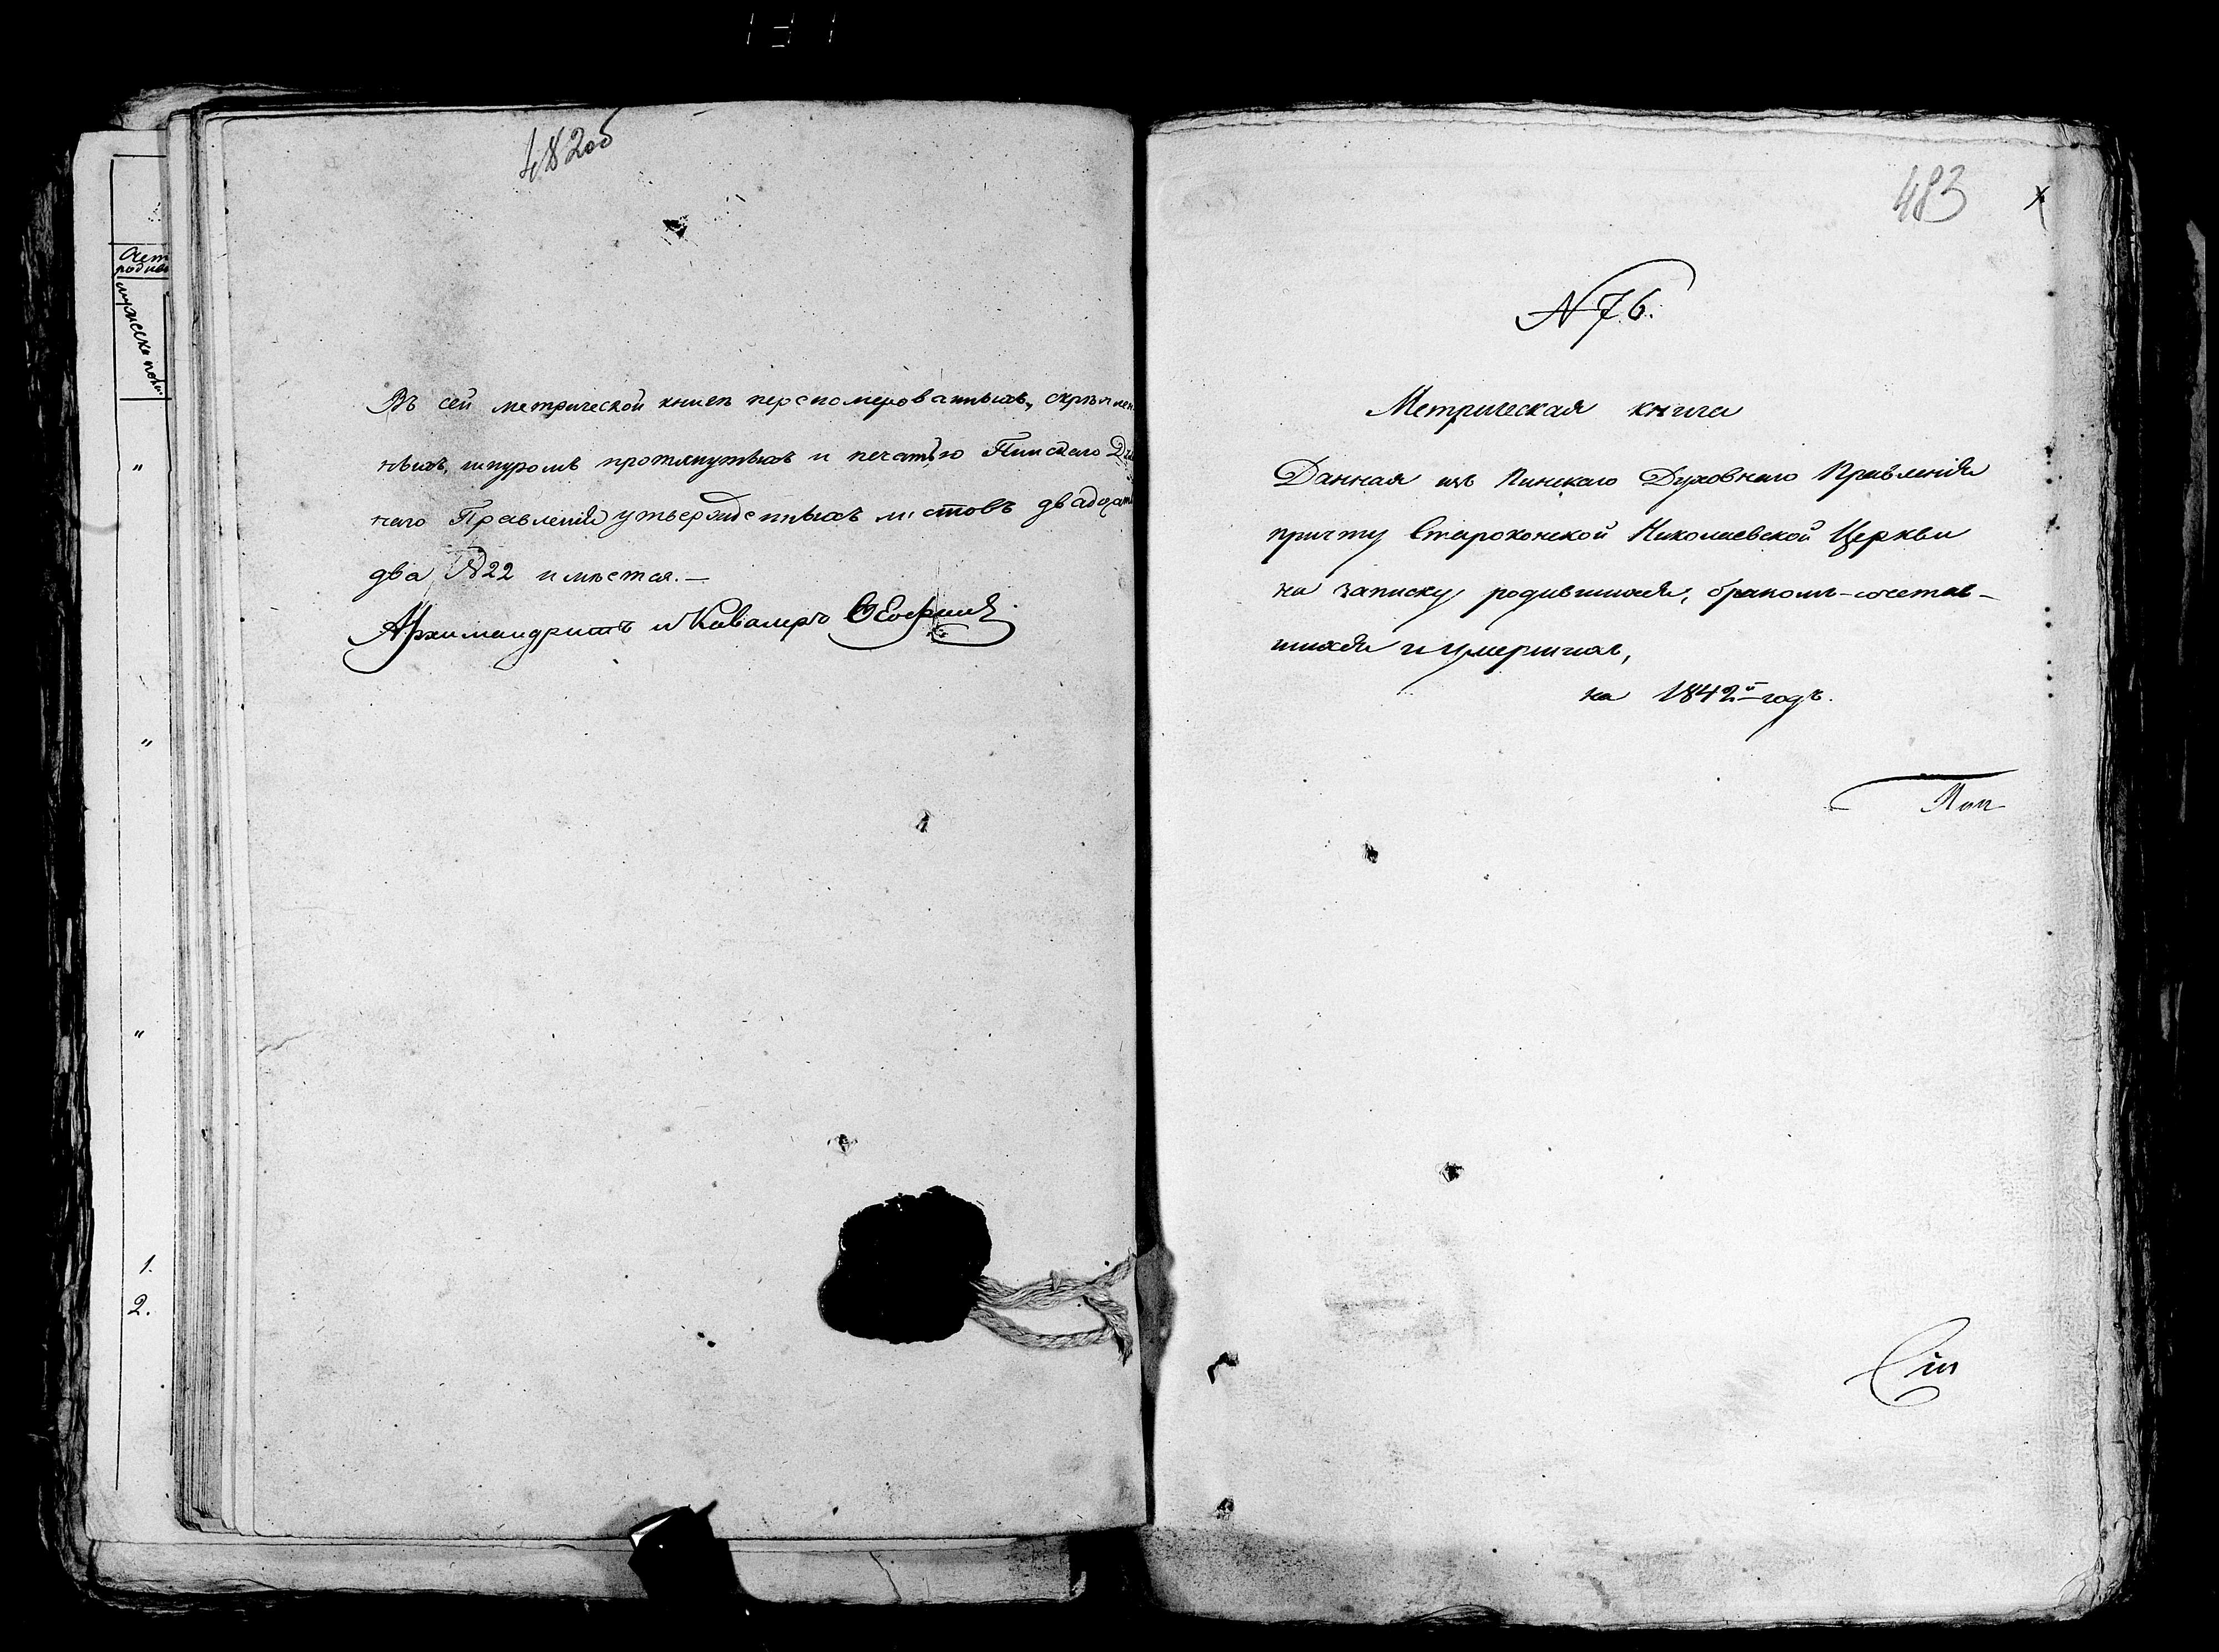 482об
Въ сей метрической книгѣ перономерованныхъ, скрѣплен
ныхъ, шнуромъ протянутыхъ и печатью Пинскаго Ду
наго Правленія утвержденныхъ листовъ двадцать
два № 22 имѣется.—
Архимандритъ и Кавалеръ
Счет
родив
мужеска пола
"
"
"
1.
2.
483
N 76.
Метрическая книга
Данная изъ Пинскаго Духовнаго Правленія
причту Староконской Николаевской Церкви
на записку родившихся, бракомъ-сочетав-
шихся и умершихъ,
на 1842й годъ.
Пин